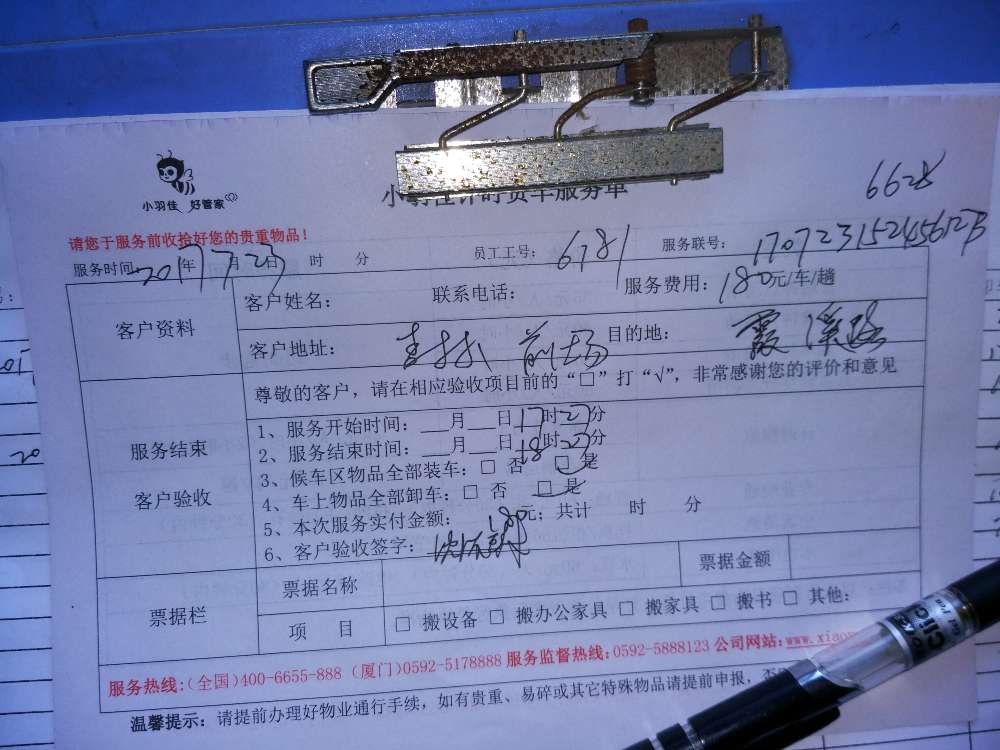 小羽佳 好管家
小羽佳计时货车服务单
6628
请您于服务前收拾好您的贵重物品！
服务时间：2017年7月23日 时 分 员工工号：6781 服务联号：
客户资料
客户姓名： 联系电话： 服务费用：180元/车/趟
客户地址： 前场 目的地：霞溪路
服务结束
客户验收
尊敬的客户，请在相应验收项目前的“□”打“√”，非常感谢您的评价和意见
1、服务开始时间：__月__日17时27分
2、服务结束时间：__月__日18时27分
3、候车区物品全部装车：□ 否 □ 是
4、车上物品全部卸车：□ 否 □ 是
5、本次服务实付金额：180元；共计 时 分
6、客户验收签字：
票据栏
票据名称 票据金额
项 目 □ 搬设备 □ 搬办公家具 □ 搬家具 □ 搬书 □ 其他：
服务热线:(全国)400-6655-888 (厦门)0592-5178888 服务监督热线:0592-5888123 公司网站:www.xiao
温馨提示：请提前办理好物业通行手续，如有贵重、易碎或其它特殊物品请提前申报，否
Clic